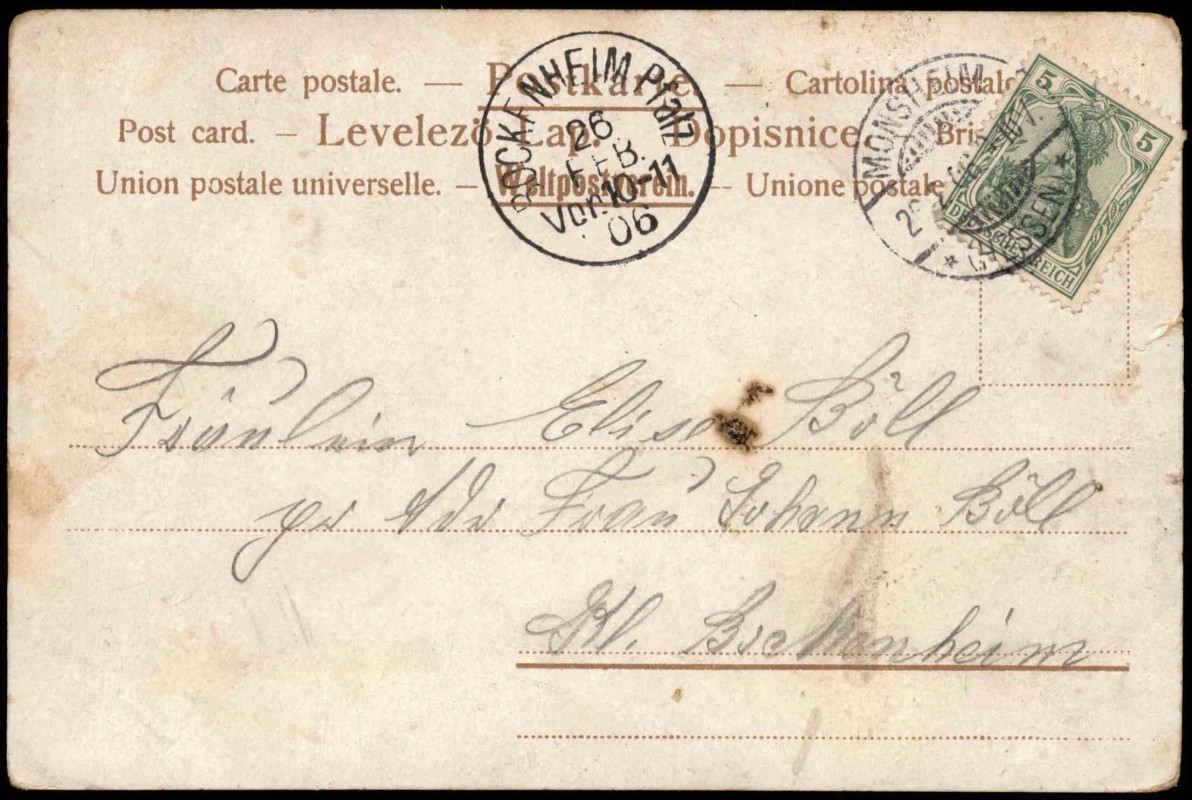 Carte postale. — Postkarte. — Cartolina postale
Post card. — Levelezö-Lap. — Dopisnice
Union postale universelle. — Weltpostverein. — Unione postale
BOCKENHEIM Pfalz
26
FEB.
Vor. 10-11
06
MONSHEIM
(HESSEN)
5
5
DEUTSCHES REICH
Fräulein Elise Böll
pr Adr Frau Johann Böll
Kl. Bockenheim